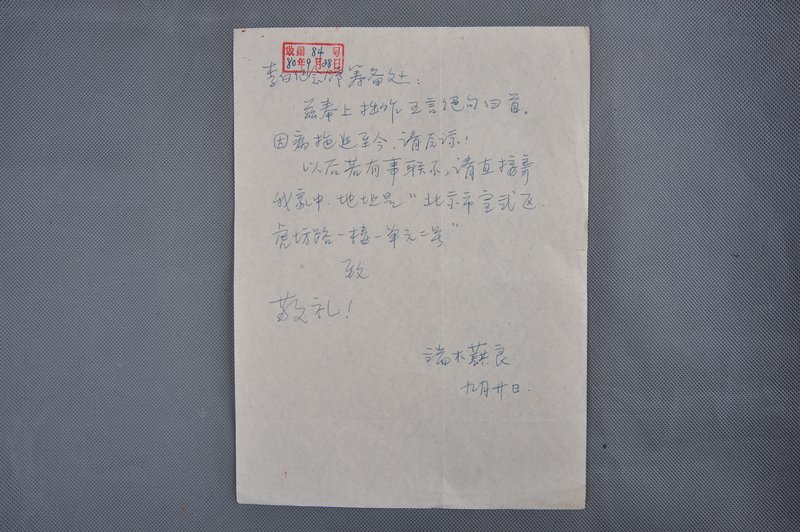 收第84号
80年9月28日
李白纪念馆筹备处:
兹奉上拙作五言绝句四首。
因病拖延至今、请原谅!
以后若有事联系,请直接寄
我家中.地址是“北京市宣武区
虎坊路一楼一单元二号”
致
敬礼!
端木蕻良
九月廿日.